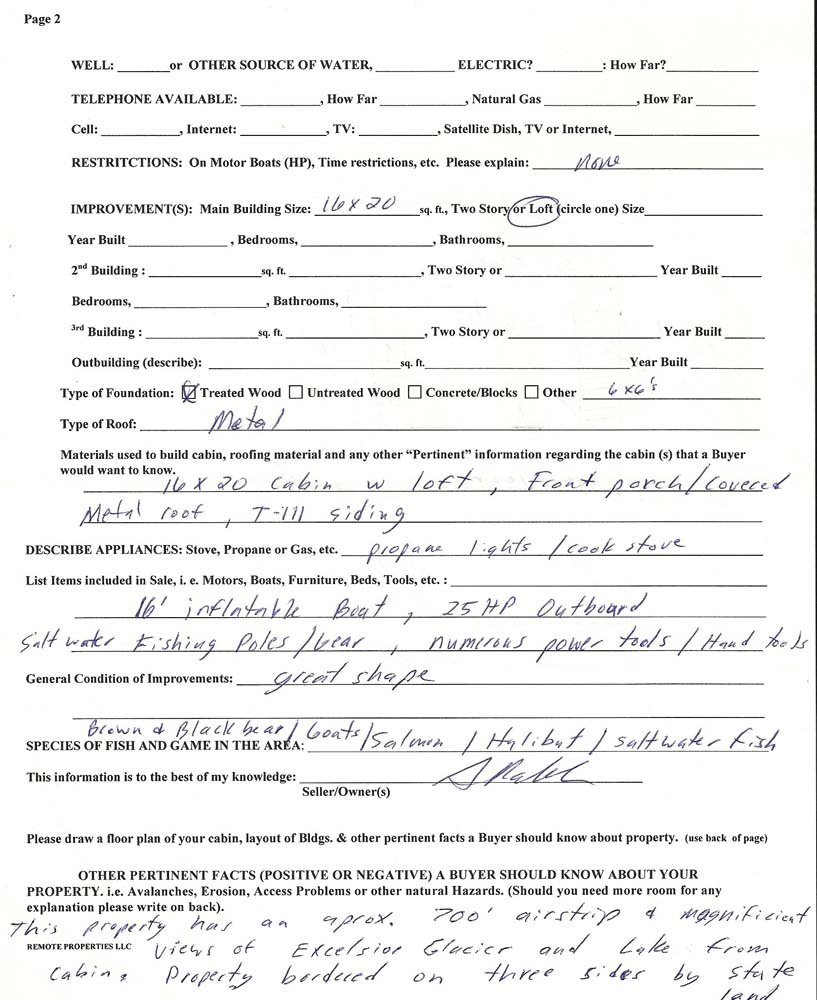 Page 2
WELL: ________or OTHER SOURCE OF WATER, ____________ ELECTRIC? __________: How Far?______________
TELEPHONE AVAILABLE: ____________, How Far _____________, Natural Gas ______________, How Far _________
Cell: ____________, Internet: _____________, TV: ____________, Satellite Dish, TV or Internet, ______________________
RESTRITCTIONS: On Motor Boats (HP), Time restrictions, etc. Please explain: none
IMPROVEMENT(S): Main Building Size: 16 x 20 sq. ft., Two Story or Loft (circle one) Size__________________
Year Built _______________ , Bedrooms, ____________________, Bathrooms, ______________________
2nd Building : _________________sq. ft. ____________________, Two Story or ________________________ Year Built ______
Bedrooms, ____________________, Bathrooms, ______________________
3rd Building : _________________sq. ft. _____________________, Two Story or _______________________ Year Built ______
Outbuilding (describe): _____________________________sq. ft._______________________________Year Built ___________
Type of Foundation: ☑ Treated Wood ☐ Untreated Wood ☐ Concrete/Blocks ☐ Other 6x6's
Type of Roof: Metal
Materials used to build cabin, roofing material and any other “Pertinent” information regarding the cabin (s) that a Buyer
would want to know.
16 x 20 Cabin w loft, Front porch/Covered
Metal roof, T-111 siding
DESCRIBE APPLIANCES: Stove, Propane or Gas, etc. propane lights / cook stove
List Items included in Sale, i. e. Motors, Boats, Furniture, Beds, Tools, etc. :
16' inflatable Boat, 25 HP Outboard
Salt water Fishing Poles/Gear, numerous power tools / Hand tools
General Condition of Improvements: great shape
Brown & Black bear/Goats/
SPECIES OF FISH AND GAME IN THE AREA: Salmon / Halibut / saltwater Fish
This information is to the best of my knowledge:
Seller/Owner(s)
Please draw a floor plan of your cabin, layout of Bldgs. & other pertinent facts a Buyer should know about property. (use back of page)
OTHER PERTINENT FACTS (POSITIVE OR NEGATIVE) A BUYER SHOULD KNOW ABOUT YOUR
PROPERTY. i.e. Avalanches, Erosion, Access Problems or other natural Hazards. (Should you need more room for any
explanation please write on back).
This property has an aprox. 700' airstrip & magnificient
REMOTE PROPERTIES LLC views of Excelsior Glacier and Lake From
Cabin. Property bordered on three sides by state
land